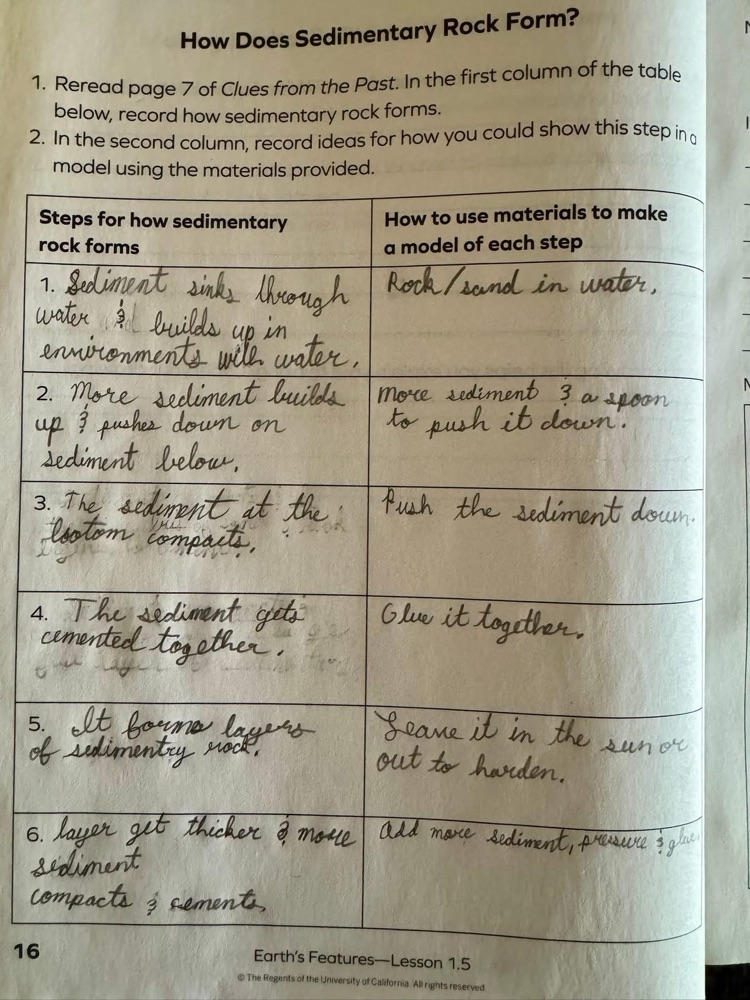 How Does Sedimentary Rock Form?
1. Reread page 7 of Clues from the Past. In the first column of the table
below, record how sedimentary rock forms.
2. In the second column, record ideas for how you could show this step in a
model using the materials provided.
Steps for how sedimentary
rock forms
How to use materials to make
a model of each step
1. Sediment sinks through
water & builds up in
environments with water.
Rock/sand in water.
2. More sediment builds
up & pushes down on
sediment below.
more sediment & a spoon
to push it down.
3. The sediment at the
bottom compacts.
Push the sediment down.
4. The sediment gets
cemented together.
Glue it together.
5. It forms layers
of sedimentry rock.
Leave it in the sun or
out to harden.
6. layer get thicker & more
sediment
compacts & cements.
add more sediment, pressure & glue
16
Earth's Features—Lesson 1.5
© The Regents of the University of California All rights reserved